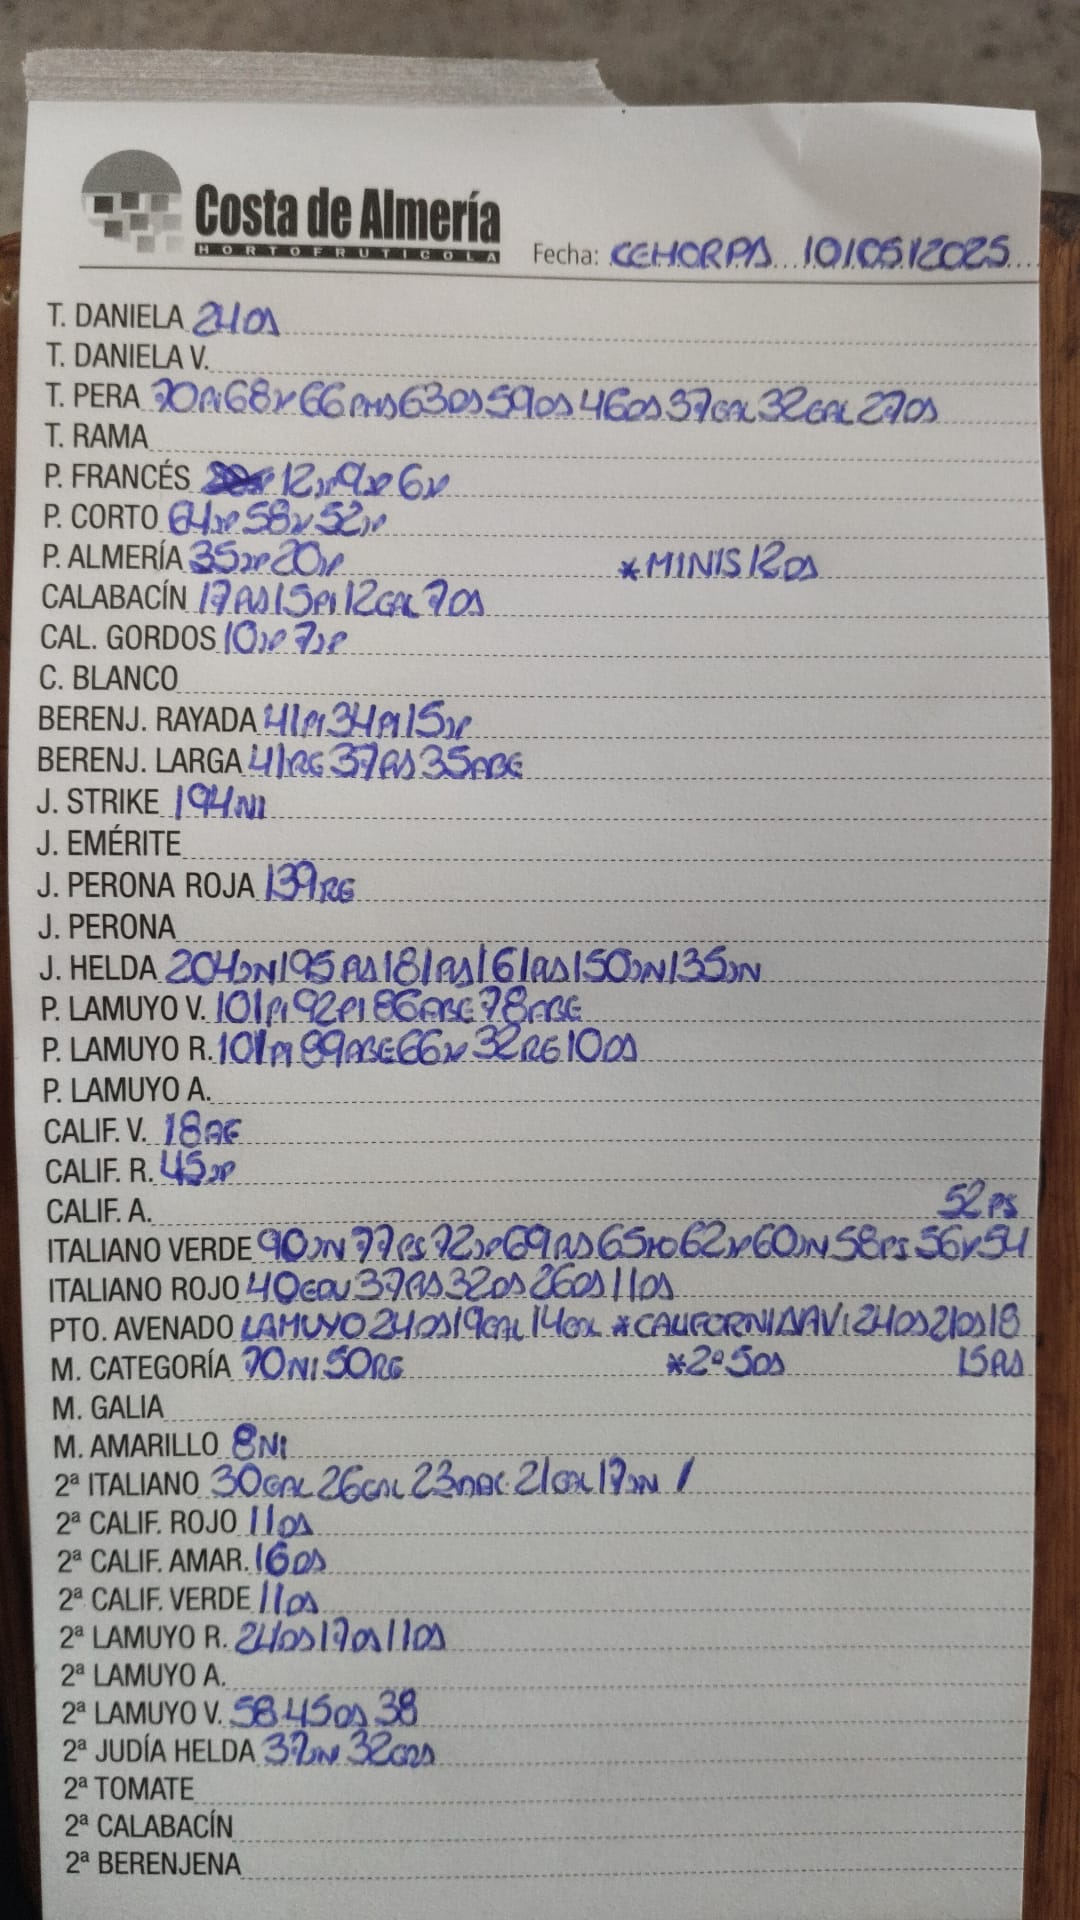 Costa de Almería
HORTOFRUTICOLA
Fecha: CEHORPA 10/05/2025
T. DANIELA 24OS
T. DANIELA V.
T. PERA 70PI 68JP 66PMS 63OS 59OS 46OS 37GAL 32GAL 27OS
T. RAMA
P. FRANCÉS 12JP 9JP 6JP
P. CORTO 64JP 58JP 52JP
P. ALMERÍA 35JP 20JP *MINIS 12OS
CALABACÍN 17AS 15PI 12GAL 7OS
CAL. GORDOS 10JP 7JP
C. BLANCO
BERENJ. RAYADA 41PI 34PI 15JP
BERENJ. LARGA 41RG 37AS 35ABE
J. STRIKE 194NI
J. EMÉRITE
J. PERONA ROJA 139RG
J. PERONA
J. HELDA 204JN 195AS 181AS 161AS 150JN 135JN
P. LAMUYO V. 101PI 92PI 86ABE 78ABE
P. LAMUYO R. 101PI 89ABE 66JP 32RG 10OS
P. LAMUYO A.
CALIF. V. 18
CALIF. R. 45JP
CALIF. A. 52PS
ITALIANO VERDE 90JN 77PS 72JP 69AS 65 62JP 60JN 58PS 56JP 54
ITALIANO ROJO 40 37AS 32OS 26OS 11OS
PTO. AVENADO LAMUYO 24OS 19GAL 14GAL *CALIFORNIA AV: 24OS 21OS 18
M. CATEGORÍA 70NI 50RG *2ª 5OS 15AS
M. GALIA
M. AMARILLO 8NI
2ª ITALIANO 30GAL 26GAL 23 21GAL 17JN /
2ª CALIF. ROJO 11OS
2ª CALIF. AMAR. 16OS
2ª CALIF. VERDE 11OS
2ª LAMUYO R. 24OS 17OS 11OS
2ª LAMUYO A.
2ª LAMUYO V. 58 45OS 38
2ª JUDÍA HELDA 37JN 32
2ª TOMATE
2ª CALABACÍN
2ª BERENJENA